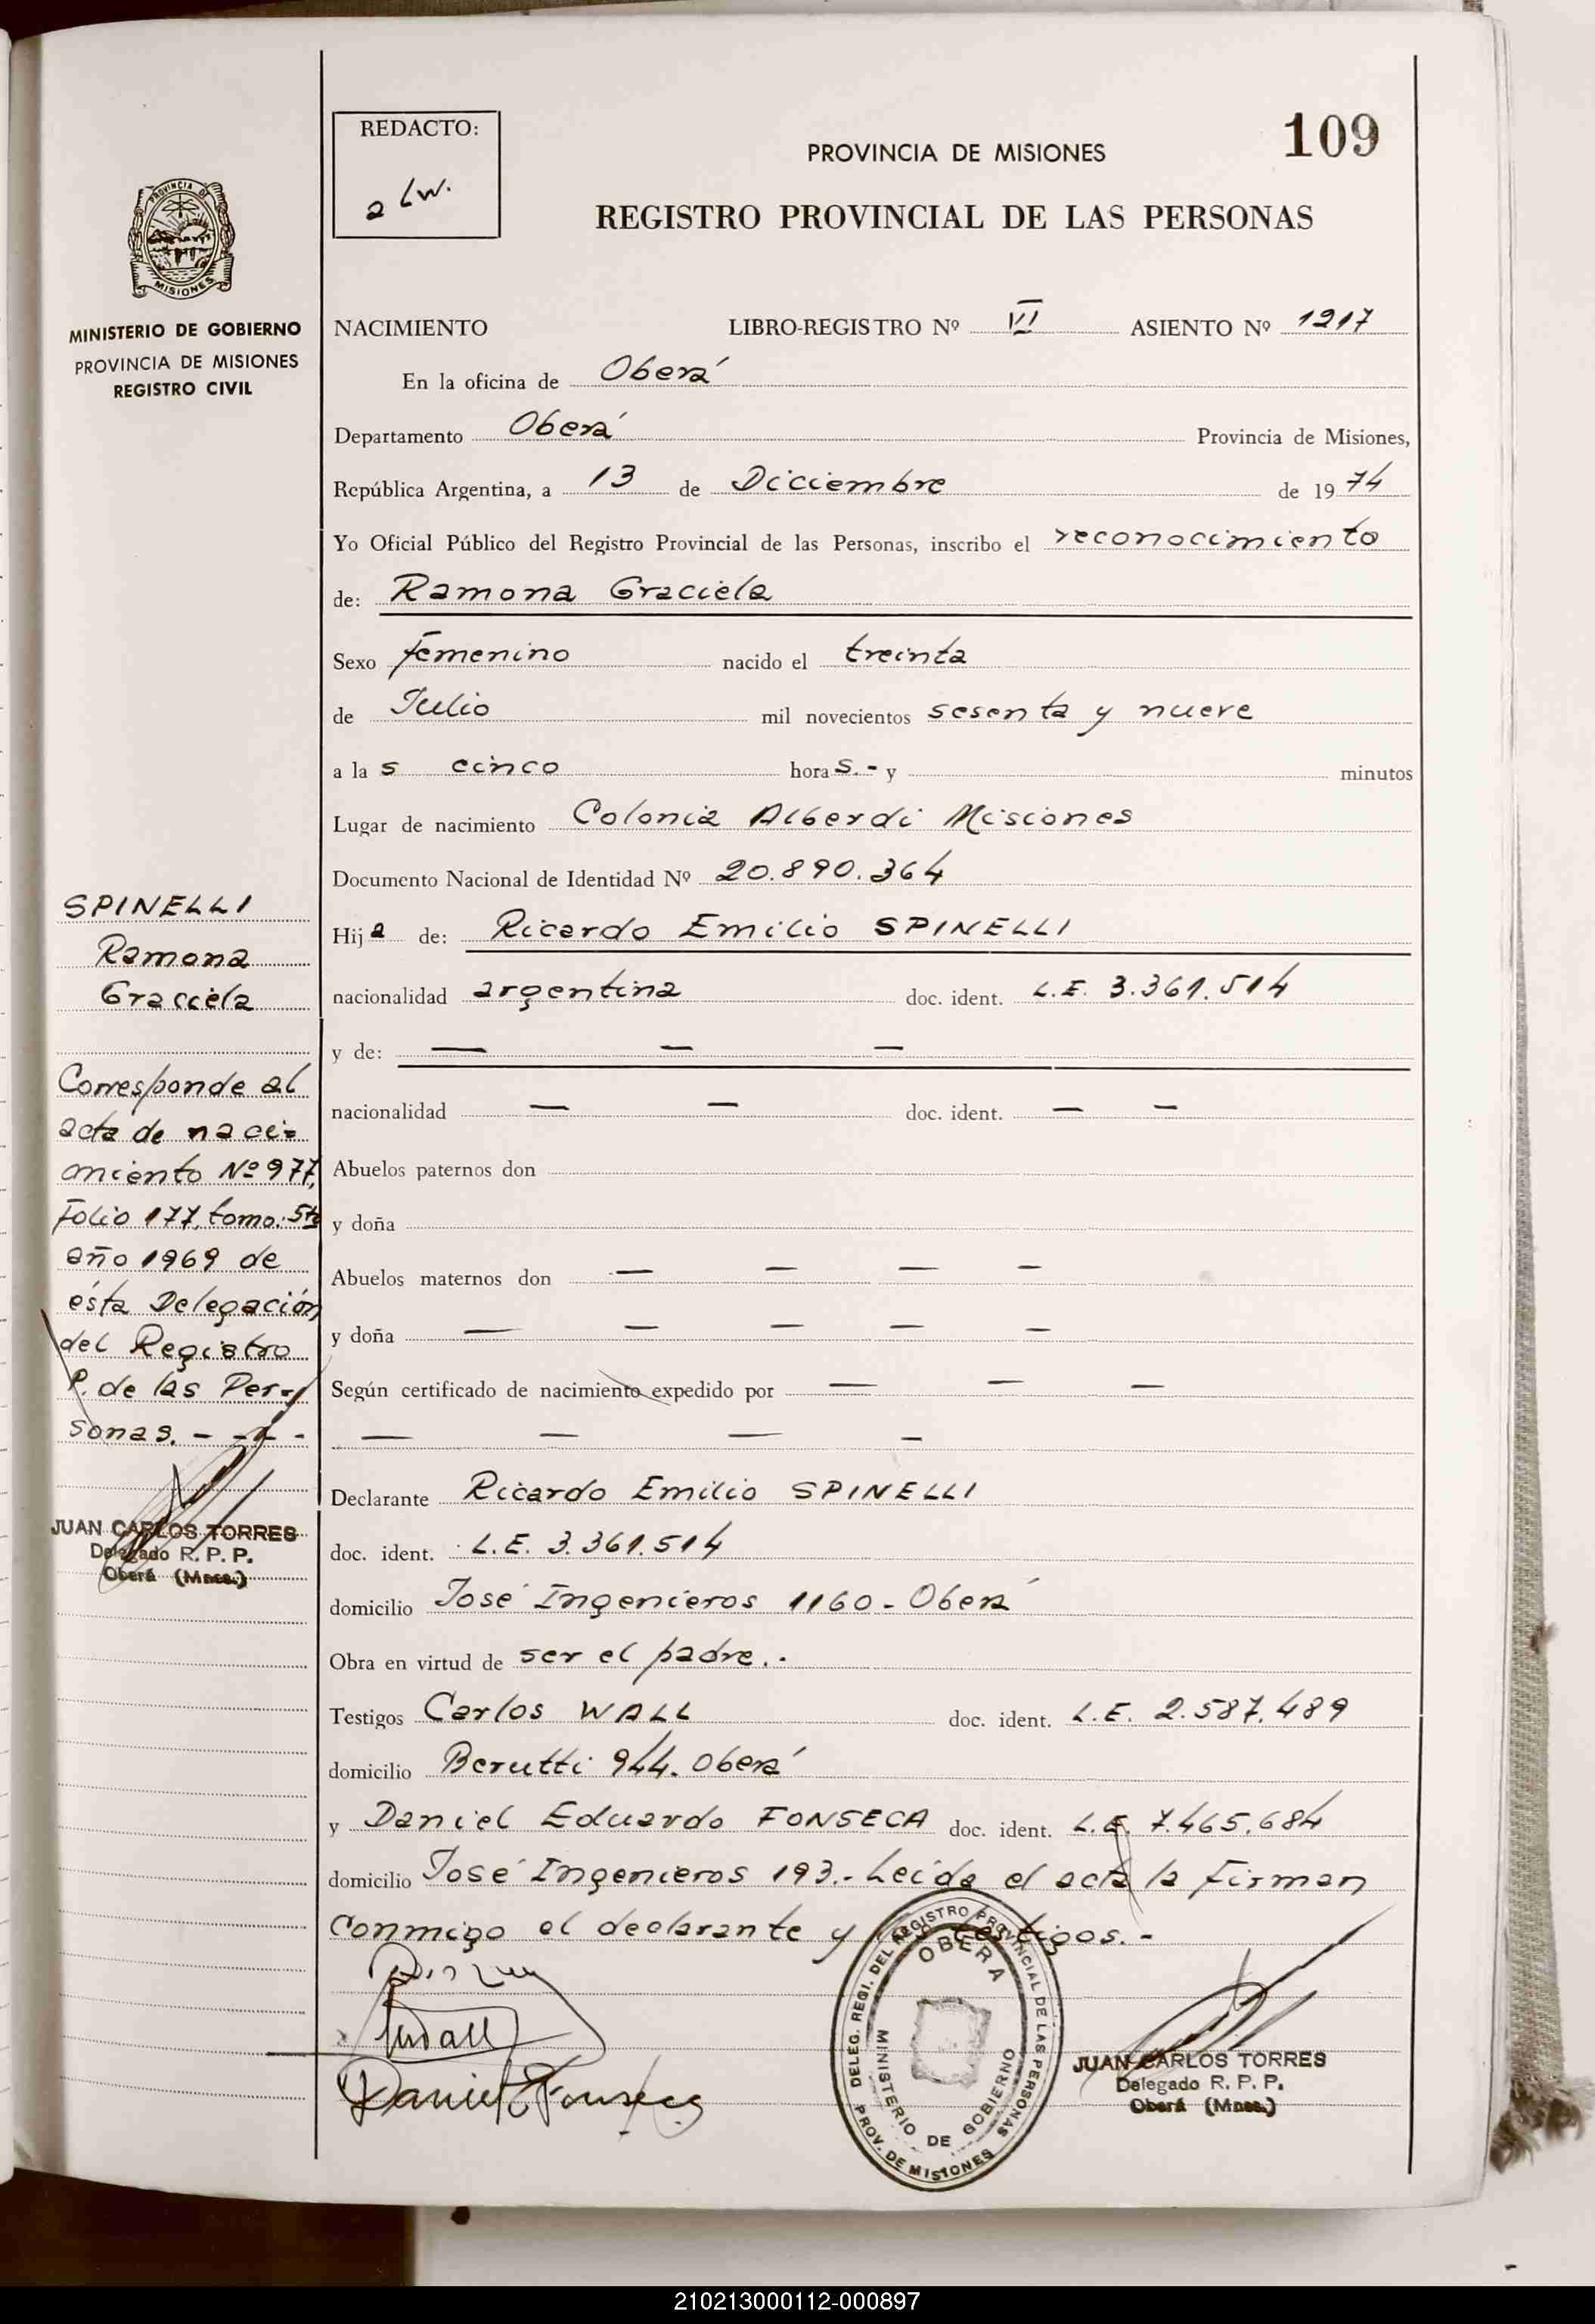 REDACTO:
PROVINCIA DE MISIONES
109
REGISTRO PROVINCIAL DE LAS PERSONAS
PROVINCIA DE
MISIONES
MINISTERIO DE GOBIERNO
PROVINCIA DE MISIONES
REGISTRO CIVIL
NACIMIENTO LIBRO-REGISTRO Nº VI ASIENTO Nº 1217
En la oficina de Oberá
Departamento Oberá Provincia de Misiones,
República Argentina, a 13 de Diciembre de 1974
Yo Oficial Público del Registro Provincial de las Personas, inscribo el reconocimiento
de: Ramona Graciela
Sexo femenino nacido el treinta
de Julio mil novecientos sesenta y nueve
a las cinco horas.- y minutos
Lugar de nacimiento Colonia Alberdi Misiones
Documento Nacional de Identidad Nº 20.890.364
Hija de: Ricardo Emilio SPINELLI
nacionalidad argentina doc. ident. L.E. 3.361.514
y de: — — —
nacionalidad — — doc. ident. — —
Abuelos paternos don
y doña
Abuelos maternos don — — — —
y doña — — — — —
Según certificado de nacimiento expedido por — — —
— — — —
Declarante Ricardo Emilio SPINELLI
doc. ident. L.E. 3.361.514
domicilio José Ingenieros 1160 - Oberá
Obra en virtud de ser el padre..
Testigos Carlos WALL doc. ident. L.E. 2.587.489
domicilio Berutti 944. Oberá
y Daniel Eduardo FONSECA doc. ident. L.E. 7.465.684
domicilio José Ingenieros 193.- Leída el acta la firman
conmigo el declarante y los testigos.-
Wall
Daniel E Fonseca
DELEG. REGI. DEL REGISTRO PROVINCIAL DE LAS PERSONAS
OBERA
MINISTERIO DE GOBIERNO
PROV. DE MISIONES
JUAN CARLOS TORRES
Delegado R. P. P.
Oberá (Mnes.)
SPINELLI
Ramona
Graciela
Corresponde al
acta de naci-
miento Nº 977,
Folio 177, tomo: 5to
año 1969 de
ésta Delegación
del Registro
P. de las Per-
sonas. - - - -
JUAN CARLOS TORRES
Delegado R. P. P.
Oberá (Mnes.)
210213000112-000897